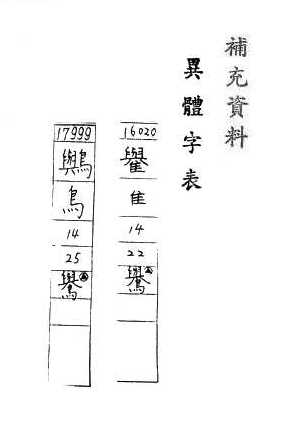 補充資料
異體字表
16020
隹
14
22
鸒
17999
䴏
鳥
14
25
鸒